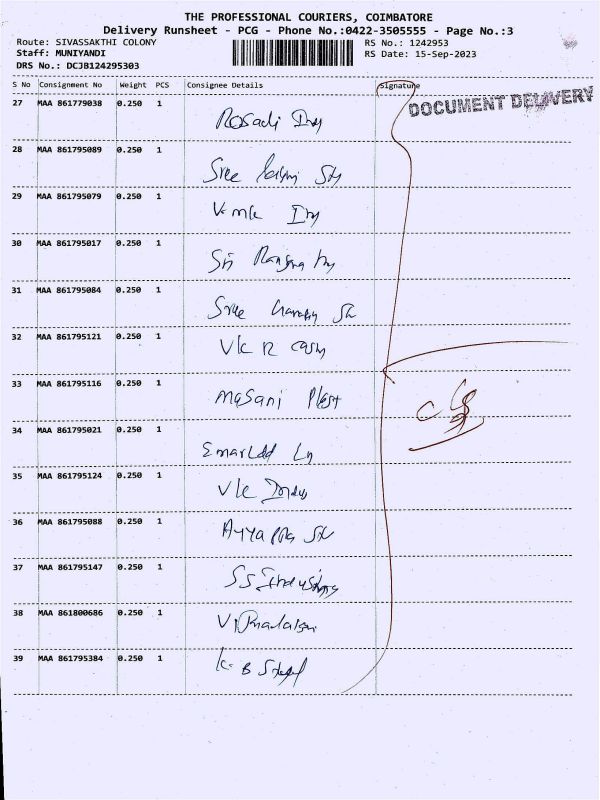 THE PROFESSIONAL COURIERS, COIMBATORE
Delivery Runsheet - PCG - Phone No.:0422-3505555 - Page No.:3
Route: SIVASSAKTHI COLONY RS No.: 1242953
Staff: MUNIYANDI RS Date: 15-Sep-2023
DRS No.: DCJB124295303
S No Consignment No Weight PCS Consignee Details Signature
DOCUMENT DELIVERY
27 MAA 861779038 0.250 1
28 MAA 861795089 0.250 1
Sree
29 MAA 861795079 0.250 1
30 MAA 861795017 0.250 1
Sri
31 MAA 861795084 0.250 1
Sree
32 MAA 861795121 0.250 1
VKR
33 MAA 861795116 0.250 1
Masani Plast
34 MAA 861795021 0.250 1
35 MAA 861795124 0.250 1
VK
36 MAA 861795088 0.250 1
37 MAA 861795147 0.250 1
SS
38 MAA 861800686 0.250 1
39 MAA 861795384 0.250 1
K. B